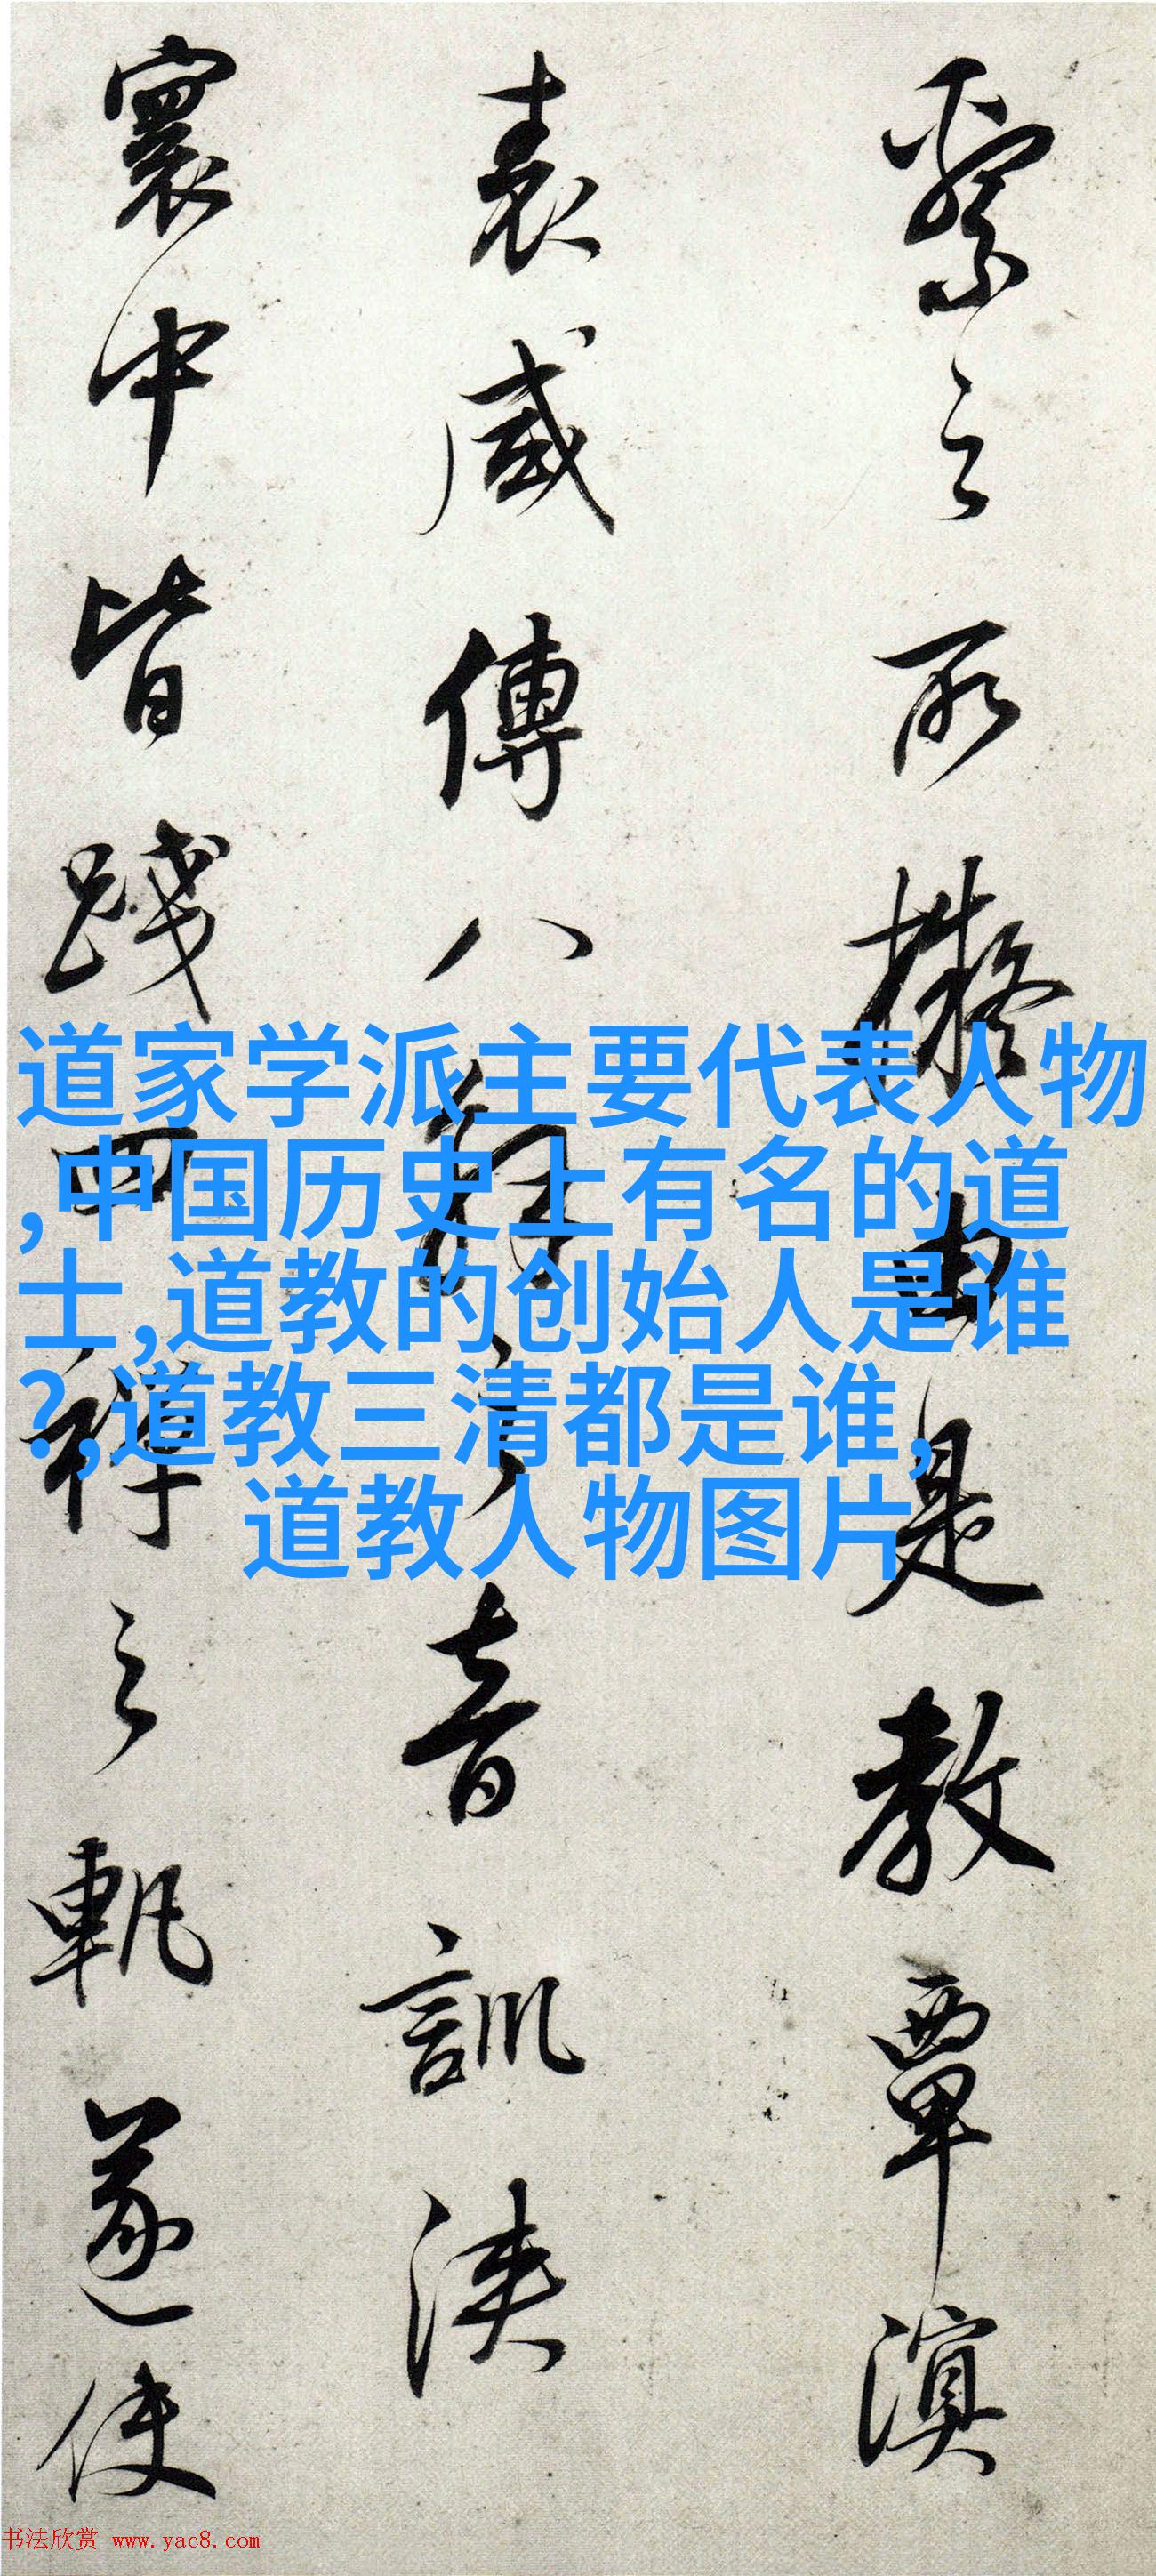 繄之所擬由是教覃溟
表咸傳八解之音訓浹
寰中皆踐四禪之軌遂使
道家学派主要代表人物
,中国历史上有名的道
士,道教的创始人是谁
?,道教三清都是谁,
道教人物图片
书法欣赏 www.yac8.com